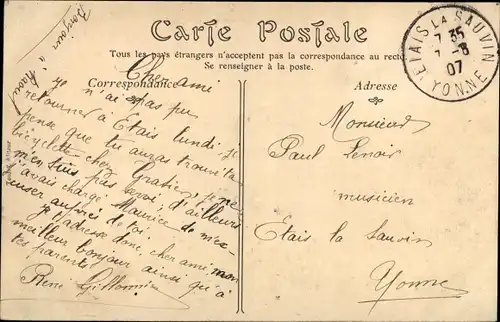 Carte Postale
Tous les pays étrangers n'acceptent pas la correspondance au recto
Se renseigner à la poste.
Correspondance
Adresse
ETAIS-LA-SAUVIN
7 35
7 -8
07
YONNE
Bonjour à
Cher ami
je n'ai pas pu
retourner à Etais lundi je
pense que tu auras trouvé ta
bicyclette chez Gratien, je ne
m'en suis pas servi d'ailleurs
j'avais chargé Maurice de m'ex-
cuser auprès de toi.
Je t'adresse donc, cher ami, mon
meilleur bonjour ainsi qu'à
tes parents
René
Monsieur
Paul Lenoir
musicien
Etais la Sauvin
Yonne